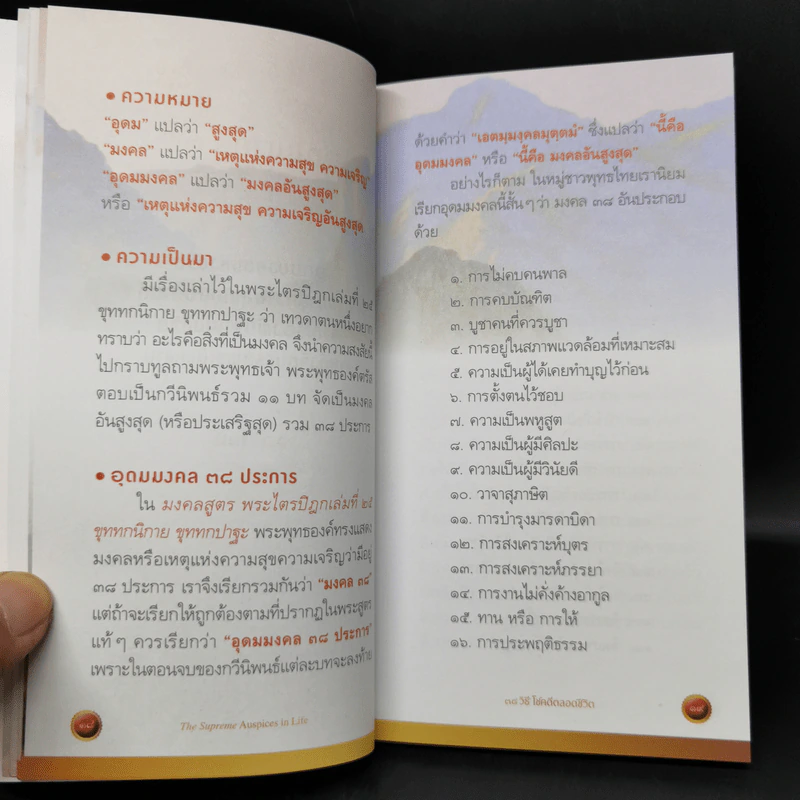 • ความหมาย
"อุดม" แปลว่า "สูงสุด"
"มงคล" แปลว่า "เหตุแห่งความสุข ความเจริญ"
"อุดมมงคล" แปลว่า "มงคลอันสูงสุด"
หรือ "เหตุแห่งความสุข ความเจริญอันสูงสุด
• ความเป็นมา
มีเรื่องเล่าไว้ในพระไตรปิฎกเล่มที่ ๒๕
ขุททกนิกาย ขุททกปาฐะ ว่า เทวดาตนหนึ่งอยาก
ทราบว่า อะไรคือสิ่งที่เป็นมงคล จึงนำความสงสัยนี้
ไปกราบทูลถามพระพุทธเจ้า พระพุทธองค์ตรัส
ตอบเป็นกวีนิพนธ์รวม ๑๑ บท จัดเป็นมงคล
อันสูงสุด (หรือประเสริฐสุด) รวม ๓๘ ประการ
• อุดมมงคล ๓๘ ประการ
ใน มงคลสูตร พระไตรปิฎกเล่มที่ ๒๕
ขุททกนิกาย ขุททกปาฐะ พระพุทธองค์ทรงแสดง
มงคลหรือเหตุแห่งความสุขความเจริญว่ามีอยู่
๓๘ ประการ เราจึงเรียกรวมกันว่า "มงคล ๓๘"
แต่ถ้าจะเรียกให้ถูกต้องตามที่ปรากฏในพระสูตร
แท้ๆ ควรเรียกว่า "อุดมมงคล ๓๘ ประการ"
เพราะในตอนจบของกวีนิพนธ์แต่ละบทจะลงท้าย
The Supreme Auspices in Life
ด้วยคำว่า "เอตมฺมงฺคลมุตฺตมํ" ซึ่งแปลว่า "นี้คือ
อุดมมงคล" หรือ "นี้คือ มงคลอันสูงสุด"
อย่างไรก็ตาม ในหมู่ชาวพุทธไทยเรานิยม
เรียกอุดมมงคลนี้สั้นๆ ว่า มงคล ๓๘ อันประกอบ
ด้วย
๑. การไม่คบคนพาล
๒. การคบบัณฑิต
๓. บูชาคนที่ควรบูชา
๔. การอยู่ในสภาพแวดล้อมที่เหมาะสม
๕. ความเป็นผู้ได้เคยทำบุญไว้ก่อน
๖. การตั้งตนไว้ชอบ
๗. ความเป็นพหูสูต
๘. ความเป็นผู้มีศิลปะ
๙. ความเป็นผู้มีวินัยดี
๑๐. วาจาสุภาษิต
๑๑. การบำรุงมารดาบิดา
๑๒. การสงเคราะห์บุตร
๑๓. การสงเคราะห์ภรรยา
๑๔. การงานไม่คั่งค้างอากูล
๑๕. ทาน หรือ การให้
๑๖. การประพฤติธรรม
๓๘ วิธี โชคดีตลอดชีวิต